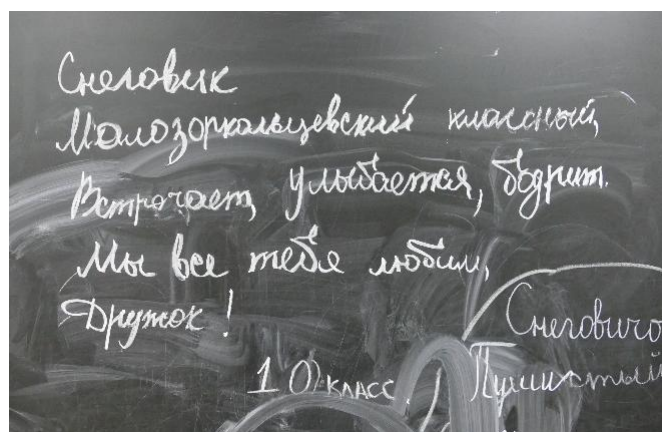 Снеговик
Малозоркальцевский классный,
Встречает, улыбается, бодрит.
Мы все тебя любим,
Дружок!
10 класс.
Снеговичо
Пушистый